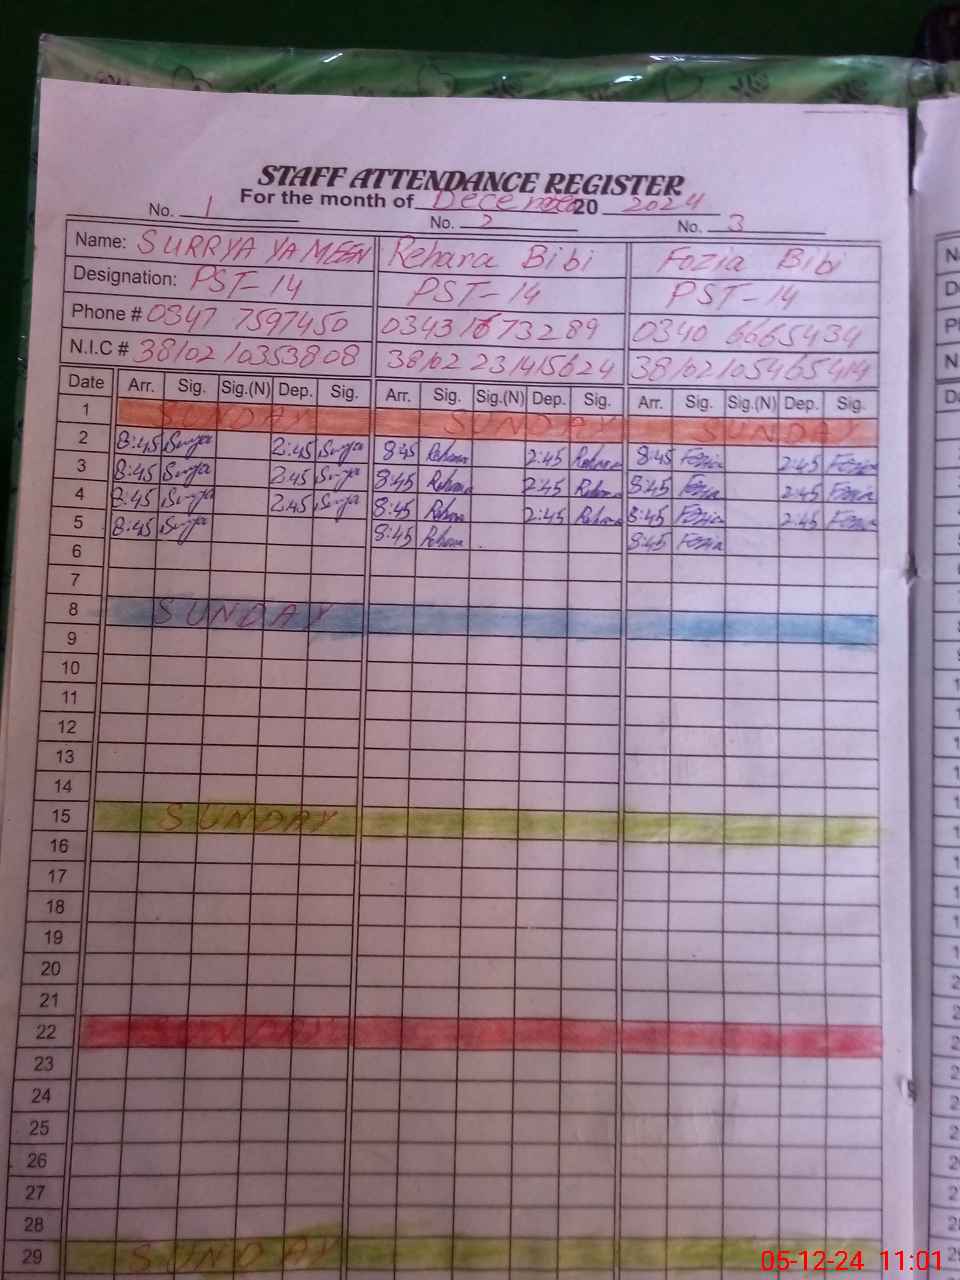 STAFF ATTENDANCE REGISTER
For the month of December 20 2024
No. 1 No. 2 No. 3
Name: SURRYA YAMEEN Rehana Bibi Fozia Bibi
Designation: PST-14 PST-14 PST-14
Phone # 0347 7597450 0343 1673289 0340 6665434
N.I.C # 38102 10353808 38102 231415624 38102 105465414
Date Arr. Sig. Sig.(N) Dep. Sig. Arr. Sig. Sig.(N) Dep. Sig. Arr. Sig. Sig.(N) Dep. Sig.
1 SUNDAY SUNDAY SUNDAY
2 8:45 Surya 2:45 Surya 8:45 Rehana 2:45 Rehana 8:45 Fozia 2:45 Fozia
3 8:45 Surya 2:45 Surya 8:45 Rehana 2:45 Rehana 8:45 Fozia 2:45 Fozia
4 8:45 Surya 2:45 Surya 8:45 Rehana 2:45 Rehana 8:45 Fozia 2:45 Fozia
5 8:45 Surya 8:45 Rehana 8:45 Fozia
6
7
8 SUNDAY
9
10
11
12
13
14
15 SUNDAY
16
17
18
19
20
21
22
23
24
25
26
27
28
29 SUNDAY
05-12-24 11:01